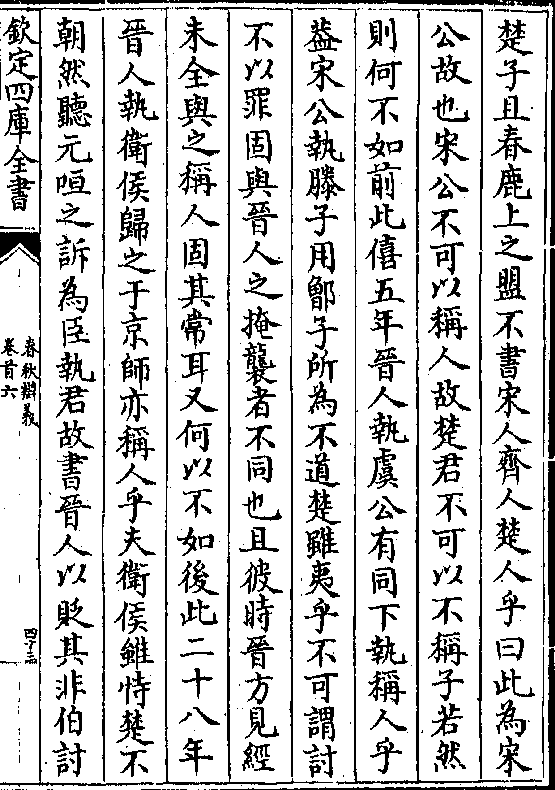 楚子且春鹿上之盟不書宋人齊人楚人乎曰此為宋
公故也宋公不可以稱人故楚君不可以不稱子若然
則何不如前此僖五年晉人執虞公有同下執稱人乎
葢宋公執滕子用鄫子所為不道楚雖夷乎不可謂討
不以罪固與晉人之掩襲者不同也且彼時晉方見經
未全與之稱人固其常耳又何以不如後此二十八年
晉人執衛侯歸之于京師亦稱人乎夫衛侯雖恃楚不
朝然聽元咺之訴為臣執君故書晉人以貶其非伯討
欽定四庫全書
春秋辯義
卷首六
四十三